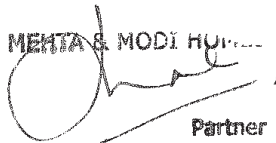 MEHTA & MODI
Partner